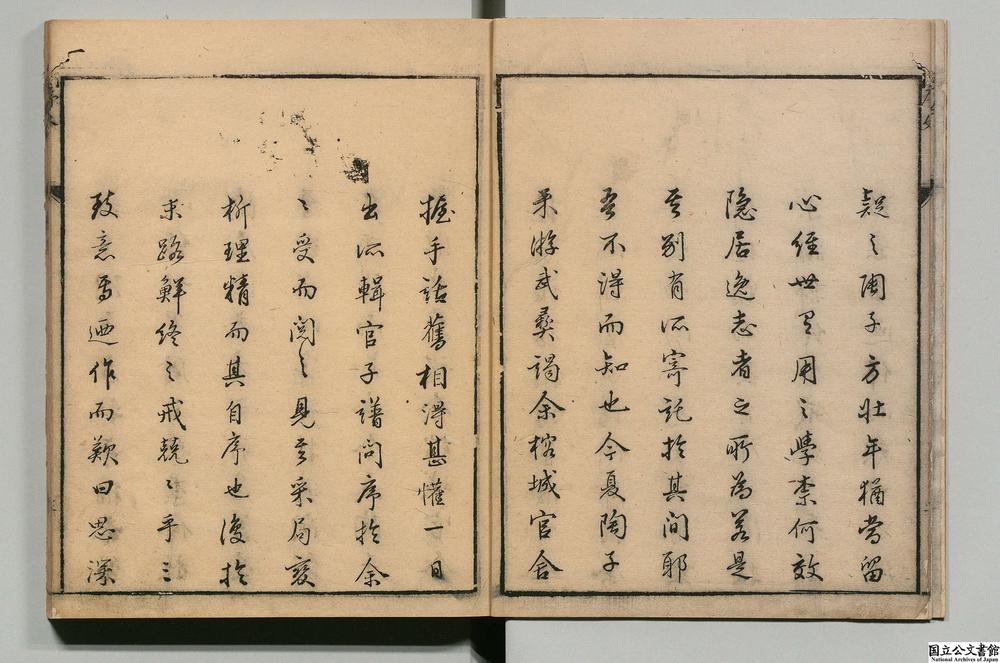 疑之陶子方壯年猶當留
心經世有用之學柰何效
隱居逸志者之所為若是
其別有所寄託於其間耶
吾不得而知也今夏陶子
來游武彝謁余榕城官舍
握手話舊相得甚懽一日
出所輯官子譜問序於余
〻受而閱之見其采局變
析理精而其自序也復於
末路鮮終之戒兢〻乎三
致意焉迺作而歎曰思深
国立公文書館
National Archives of Japan